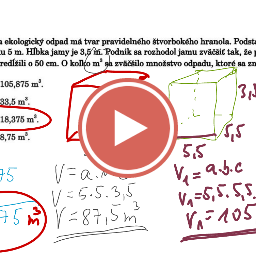 a ekologický odpad má tvar pravidelného štvorbokého hranola. Podsta
u 5 m. Hĺbka jamy je 3,5 m. Podnik sa rozhodol jamu zväčšiť tak, že
redĺžili o 50 cm. O koľko m³ sa zväčšilo množstvo odpadu, ktoré sa
105,875 m³.
33,5 m³.
18,375 m³.
8,75 m³.
3,5
5,5
5,5
V = a.
V = 5.5.3,5
V = 87,5 m³
V₁ = a.b.c
V₁ = 5,5.5,5
V₁ = 105
75
75 m³